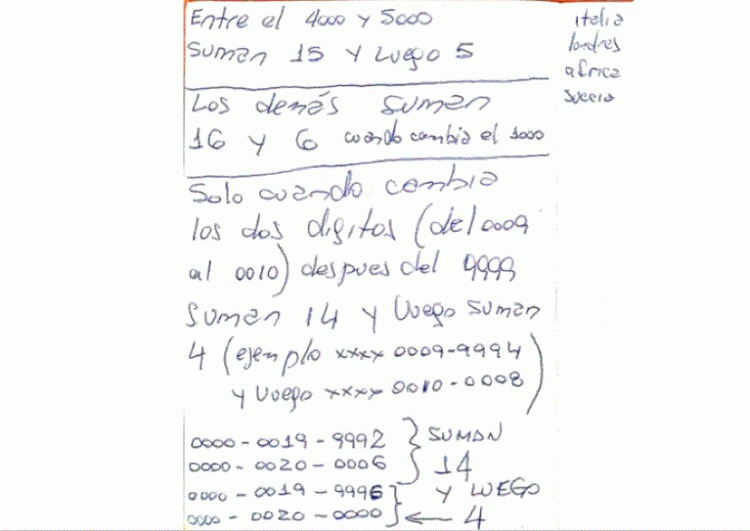 Entre el 4000 y 5000
suman 15 y luego 5
Los demás suman
16 y 6 cuando cambia el 1000
Solo cuando cambia
los dos digitos (del 0009
al 0010) despues del 9999
suman 14 y luego suman
4 (ejemplo xxxx 0009-9994
y luego xxxx 0010-0008)
0000-0019-9992 } SUMAN
0000-0020-0006 } 14
0000-0019-9996 } y LUEGO
0000-0020-0000 } ← 4
italia
londres
africa
suecia